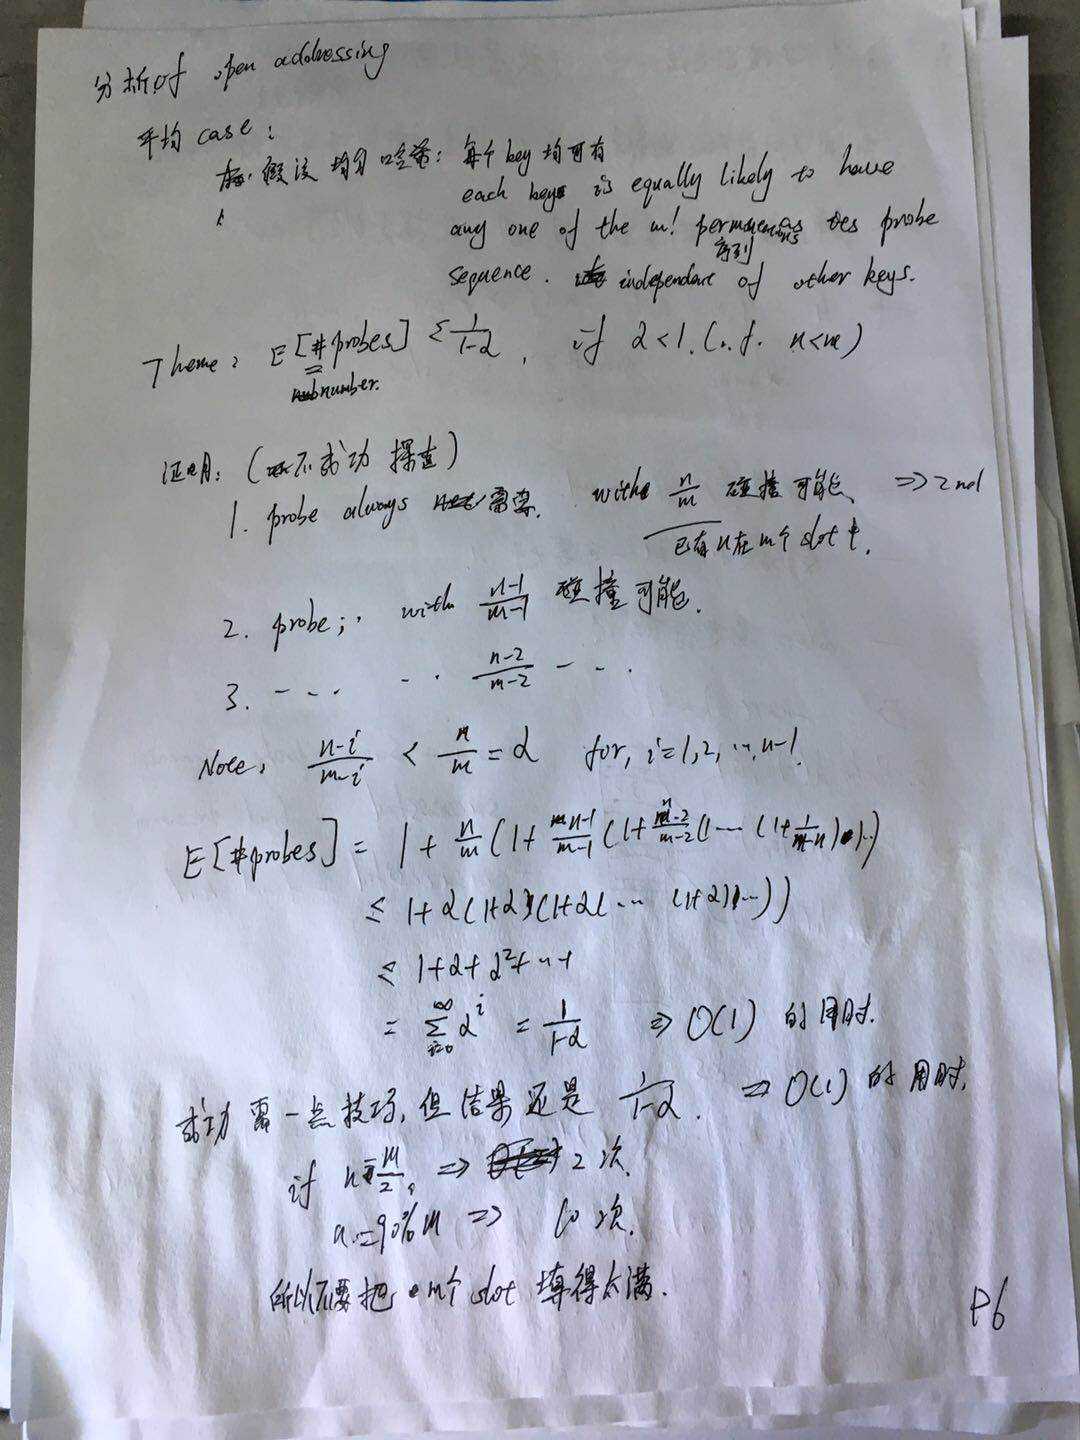 分析of open addressing
平均 case:
假设 均匀哈希: 每个 key 均可有
each key is equally likely to have
any one of the m! permutations as probe
序列
sequence. independent of other keys.
Theme: E[#probes] ≤ 1/(1-α), if α<1. (i.f. n<m)
number.
证明: (不成功 探查)
1. probe always 需要. with n/m 碰撞可能 ⇒ 2nd
已有n在m个slot中.
2. probe; with (n-1)/(m-1) 碰撞可能.
3. --- -- (n-2)/(m-2) ---
Note, (n-i)/(m-i) < n/m = α for, i=1,2,…,n-1
E[#probes] = 1 + n/m (1 + (n-1)/(m-1) (1 + (n-2)/(m-2) (1 ⋯ (1 + 1/(m-n)) ⋯)
≤ 1+α(1+α)(1+α( ⋯ (1+α) ⋯))
≤ 1+α+α²+⋯+
= ∑_{i=0}^{∞} α^i = 1/(1-α) ⇒ O(1) 的用时.
成功 需一点技巧, 但结果还是 1/(1-α). ⇒ O(1) 的用时.
if n=m/2, ⇒ 2次.
n=90%m ⇒ 10次.
所以不要把 m个 slot 填得太满.
P6